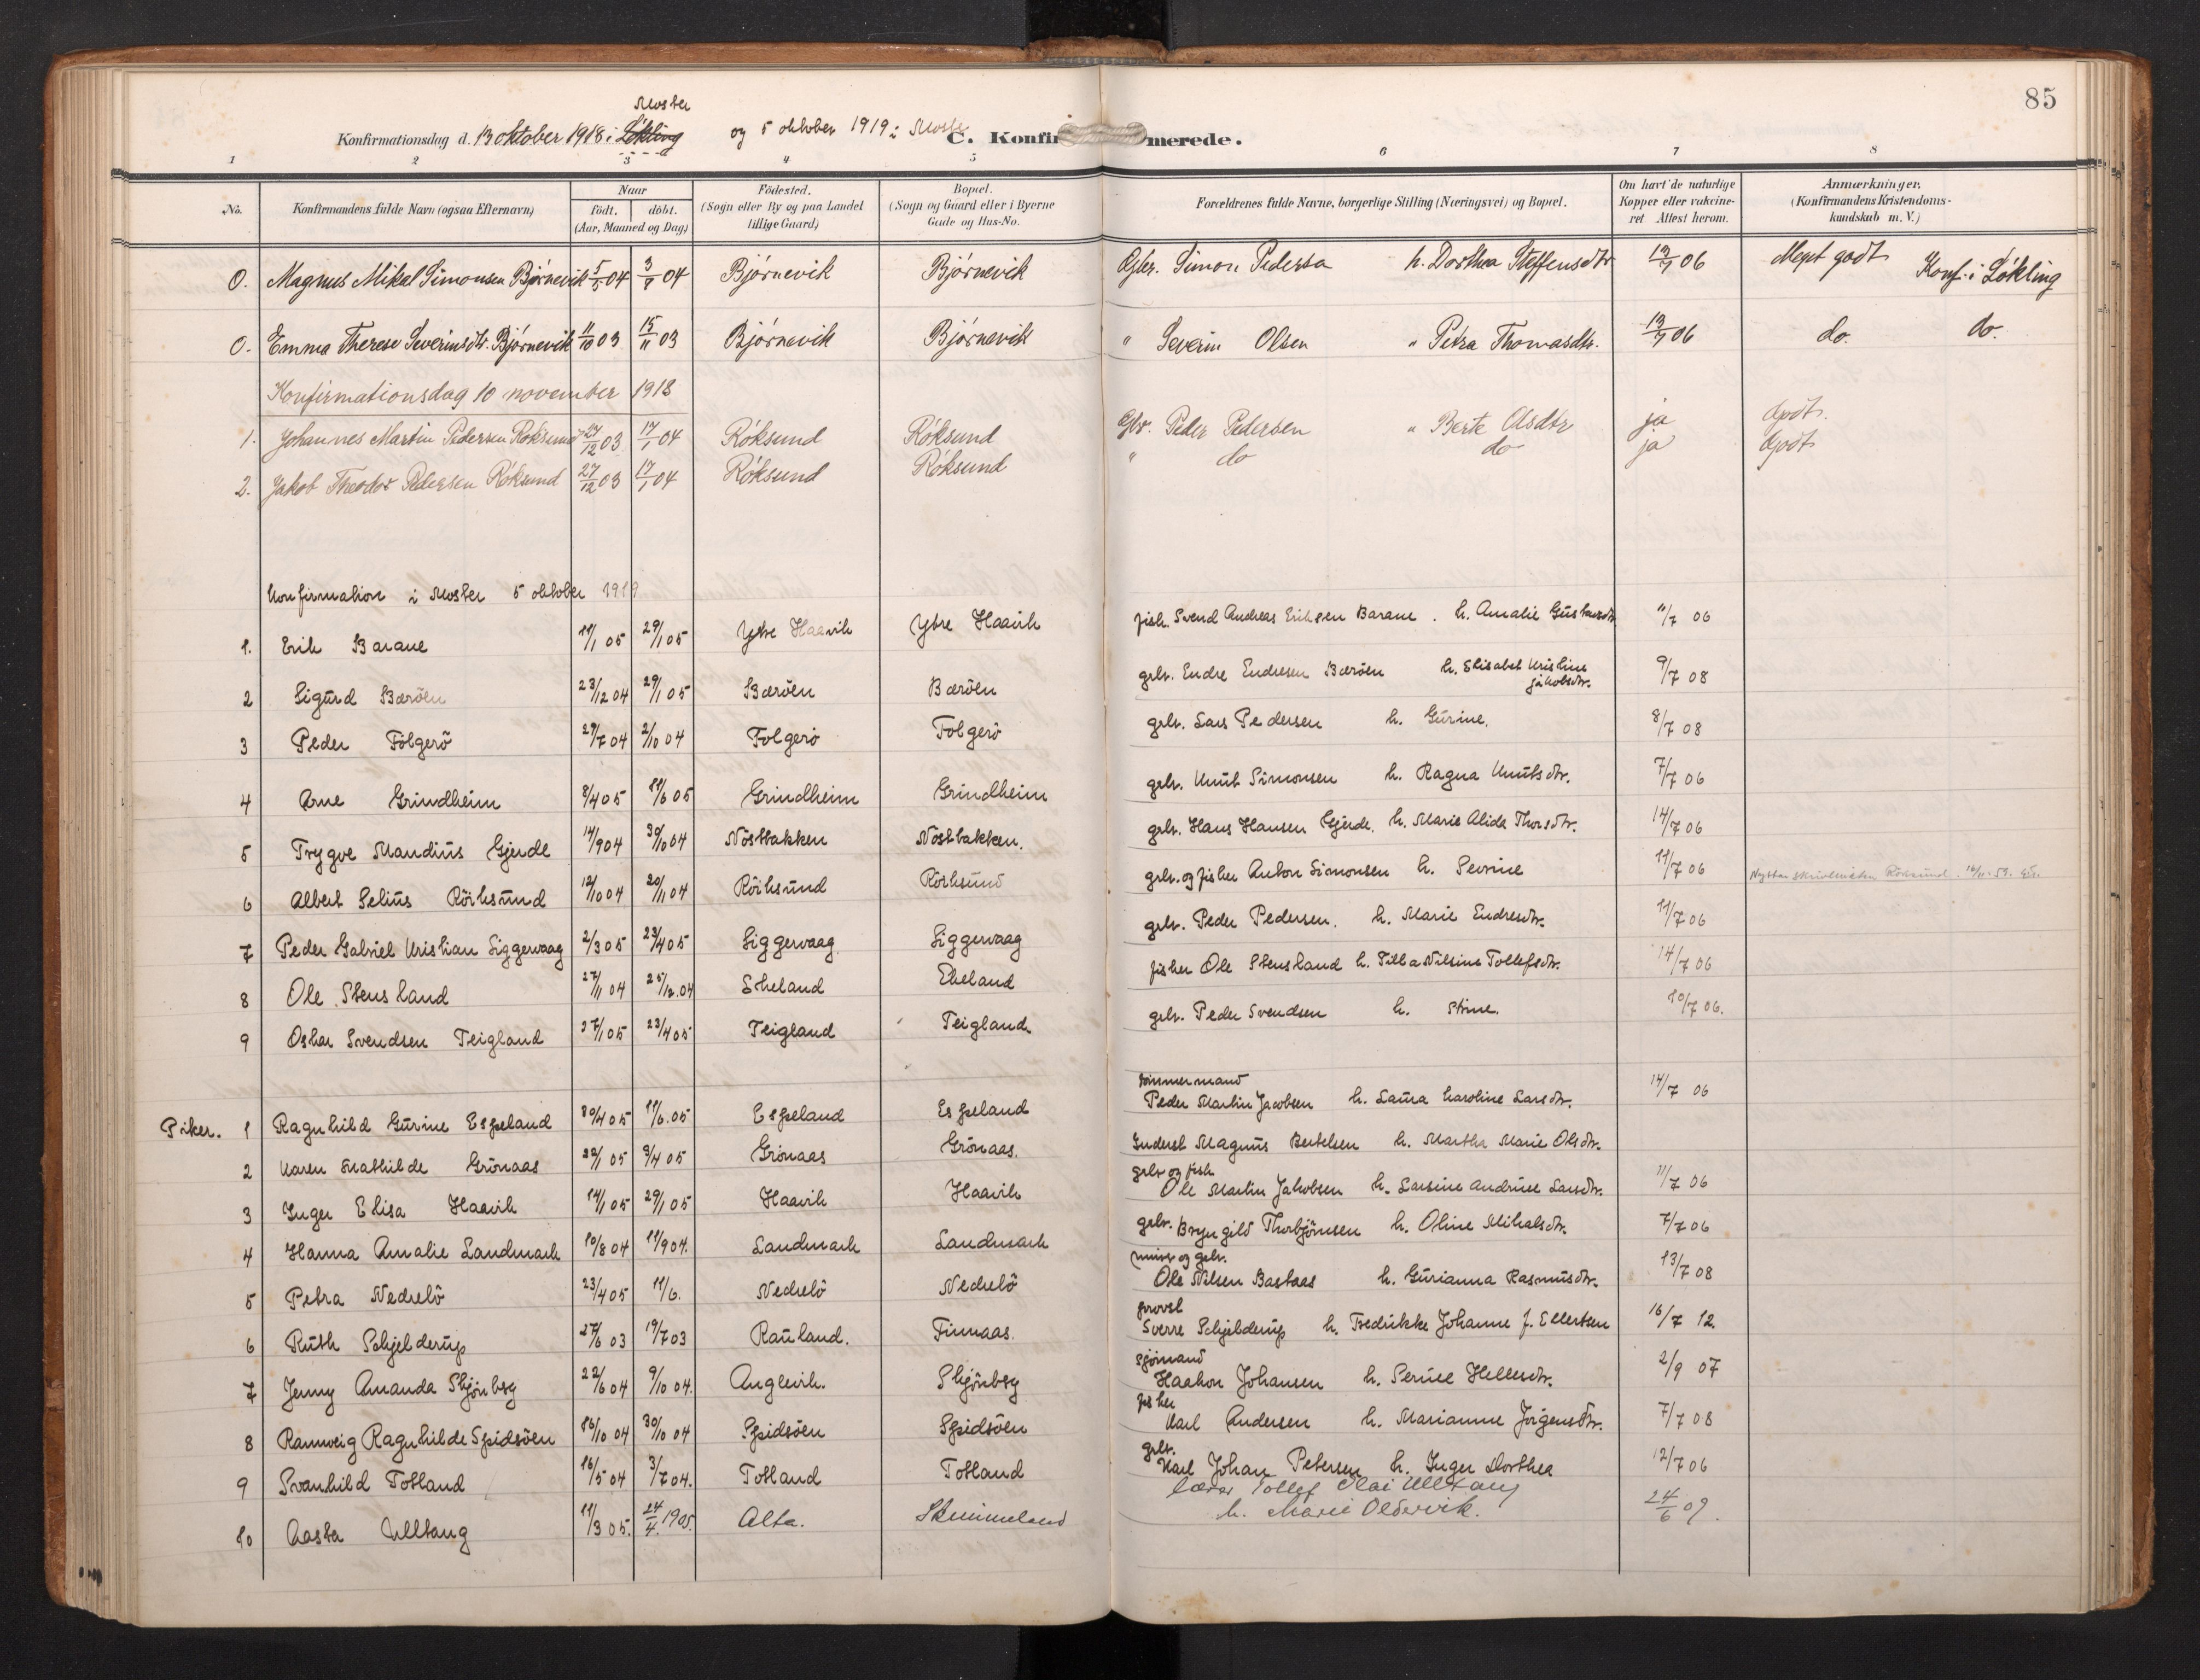 85
Moster
Konfirmationsdag d. 13 oktober 1918 i Løkling og 5 oktober 1919 i Moster
C. Konfirmerede.
1 2 3 4 5 6 7 8
No. Konfirmandens fulde Navn (ogsaa Efternavn) Naar født. døbt. (Aar, Maaned og Dag) Födested. (Sogn eller By og paa Landet tillige Gaard) Bopæl. (Sogn og Gaard eller i Byerne Gade og Hus-No. Forældrenes fulde Navne, borgerlige Stilling (Næringsvei) og Bopæl. Om havt de naturlige Kopper eller vakcineret Attest herom. Anmærkninger. (Konfirmandens Kristendomskundskab m. V.)
0. Magnus Mikal Simonsen Bjørnevik 5/5 04 3/7 04 Bjørnevik Bjørnevik Gbr. Simon Pedersen h. Dorthea Steffensdtr 12/7 06 Meget godt Konf. i Løkling
0. Emma Therese Severinsdtr. Bjørnevik 11/10 03 15/11 03 Bjørnevik Bjørnevik " Severin Olsen " Petra Thomasdtr. 12/7 06 do. do.
Konfirmationsdag 10 november 1918
1. Johannes Martin Pedersen Røksund 27/12 03 17/1 04 Røksund Røksund Gbr. Peder Pedersen " Berte Olsdtr ja Godt.
2. Jakob Theodor Pedersen Røksund 27/12 03 17/1 04 Røksund Røksund " do do ja Godt
Konfirmation i Moster 5 oktober 1919
1. Erik Barane 11/1 05 29/1 05 Ytre Haavik Ytre Haavik fisk. Svend Andreas Eriksen Barane. h. Amalie Gustavsdtr 11/7 06
2 Sigurd Bærøen 23/12 04 29/1 05 Bærøen Bærøen gbr. Endre Endresen Bærøen h. Elisabet Kristine Jakobsdtr. 9/7 08
3 Peder Folgerø 29/7 04 2/10 04 Folgerø Folgerø gbr. Lars Pedersen h. Gurine. 8/7 08
4 Arne Grindheim 8/4 05 11/6 05 Grindheim Grindheim gbr. Knut Simonsen h. Ragna Knutsdtr. 7/7 06
5 Trygve Mandius Gjerde 14/9 04 30/10 04 Nøstbakken Nøstbakken. gbr. Hans Hansen Gjerde. h. Marie Alida Thorsdtr. 14/7 06
6 Albert Selius Röiksund 12/10 04 20/11 04 Röiksund Röiksund gbr. og fisker Anton Simonsen h. Sevrine 11/7 06
7 Peder Gabriel Kristian Siggervaag 2/3 05 23/4 05 Siggervaag Siggervaag gbr. Peder Pedersen. h. Marie Endresdtr. 11/7 06
8 Ole Stensland 27/11 04 25/12 04 Ekeland Ekeland fisker Ole Stensland h. Tilla Nilsine Tollefsdtr. 14/7 06
9 Oskar Svendsen Teigland 27/1 05 23/4 05 Teigland Teigland gbr. Peder Svendsen h. Stine. 10/7 06.
Piker. 1 Ragnhild Gurine Espeland 30/4 05 11/6 05 Espeland Espeland tömmermand Peder Martin Jacobsen h. Laura Karoline Larsdtr. 14/7 06
2 Karen Mathilde Grönaas 22/1 05 9/4 05 Grönaas Grönaas. Inderst Magnus Bertelsen h. Martha Marie Olsdtr.
3 Inger Elisa Haavik 14/1 05 29/1 05 Haavik Haavik gbr og fisk Ole Martin Jakobsen h. Larsine Andrine Larsdtr. 11/7 06
4 Hanna Amalie Landmark 10/8 04 11/9 04. Landmark Landmark gbr. Bryngild Thorbjörnsen h. Oline Mikalsdtr. 7/7 06
5 Petra Nedrelö 23/4 05 11/6. Nedrelö Nedrelö murer og gbr. Ole Nilsen Bastaas h. Gurianna Rasmusdtr. 13/7 08
6 Ruth Schjelderup 27/6 03 19/7 03 Rauland. Finnaas. provst Sverre Schjelderup h. Fredrikke Johanne f. Ellertsen 16/7 12
7 Jenny Amanda Skjönberg 22/6 04 9/10 04. Anglevik. Skjönberg sjömand Haakon Johansen h. Serine Hellesdtr. 2/9 07
8 Rannveig Ragnhilde Spidsöen 16/10 04 30/10 04 Spidsöen Spidsöen fisker Karl Andersen h. Marianne Jörgensdtr. 7/7 08
9 Svanhild Totland 16/5 04 3/7 04. Totland Totland gbr. Karl Johan Petersen h. Inger Dorthea 12/7 06
10 Aasta Ulltang 11/3 05. 24/4. 1905. Alta. Skimmeland Lærer Tollef Olai Ulltang h. Marie Oldervik. 24/6 09.